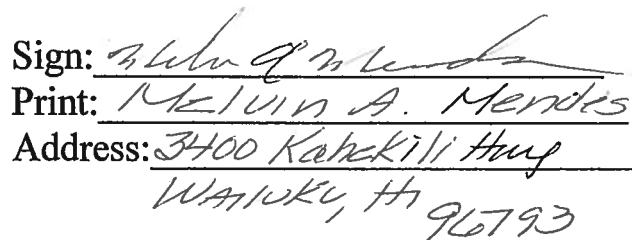 Sign: Melvin A Mendes
Print: Melvin A. Mendes
Address: 3400 Kahekili Hwy
WAILUKU, HI
96793